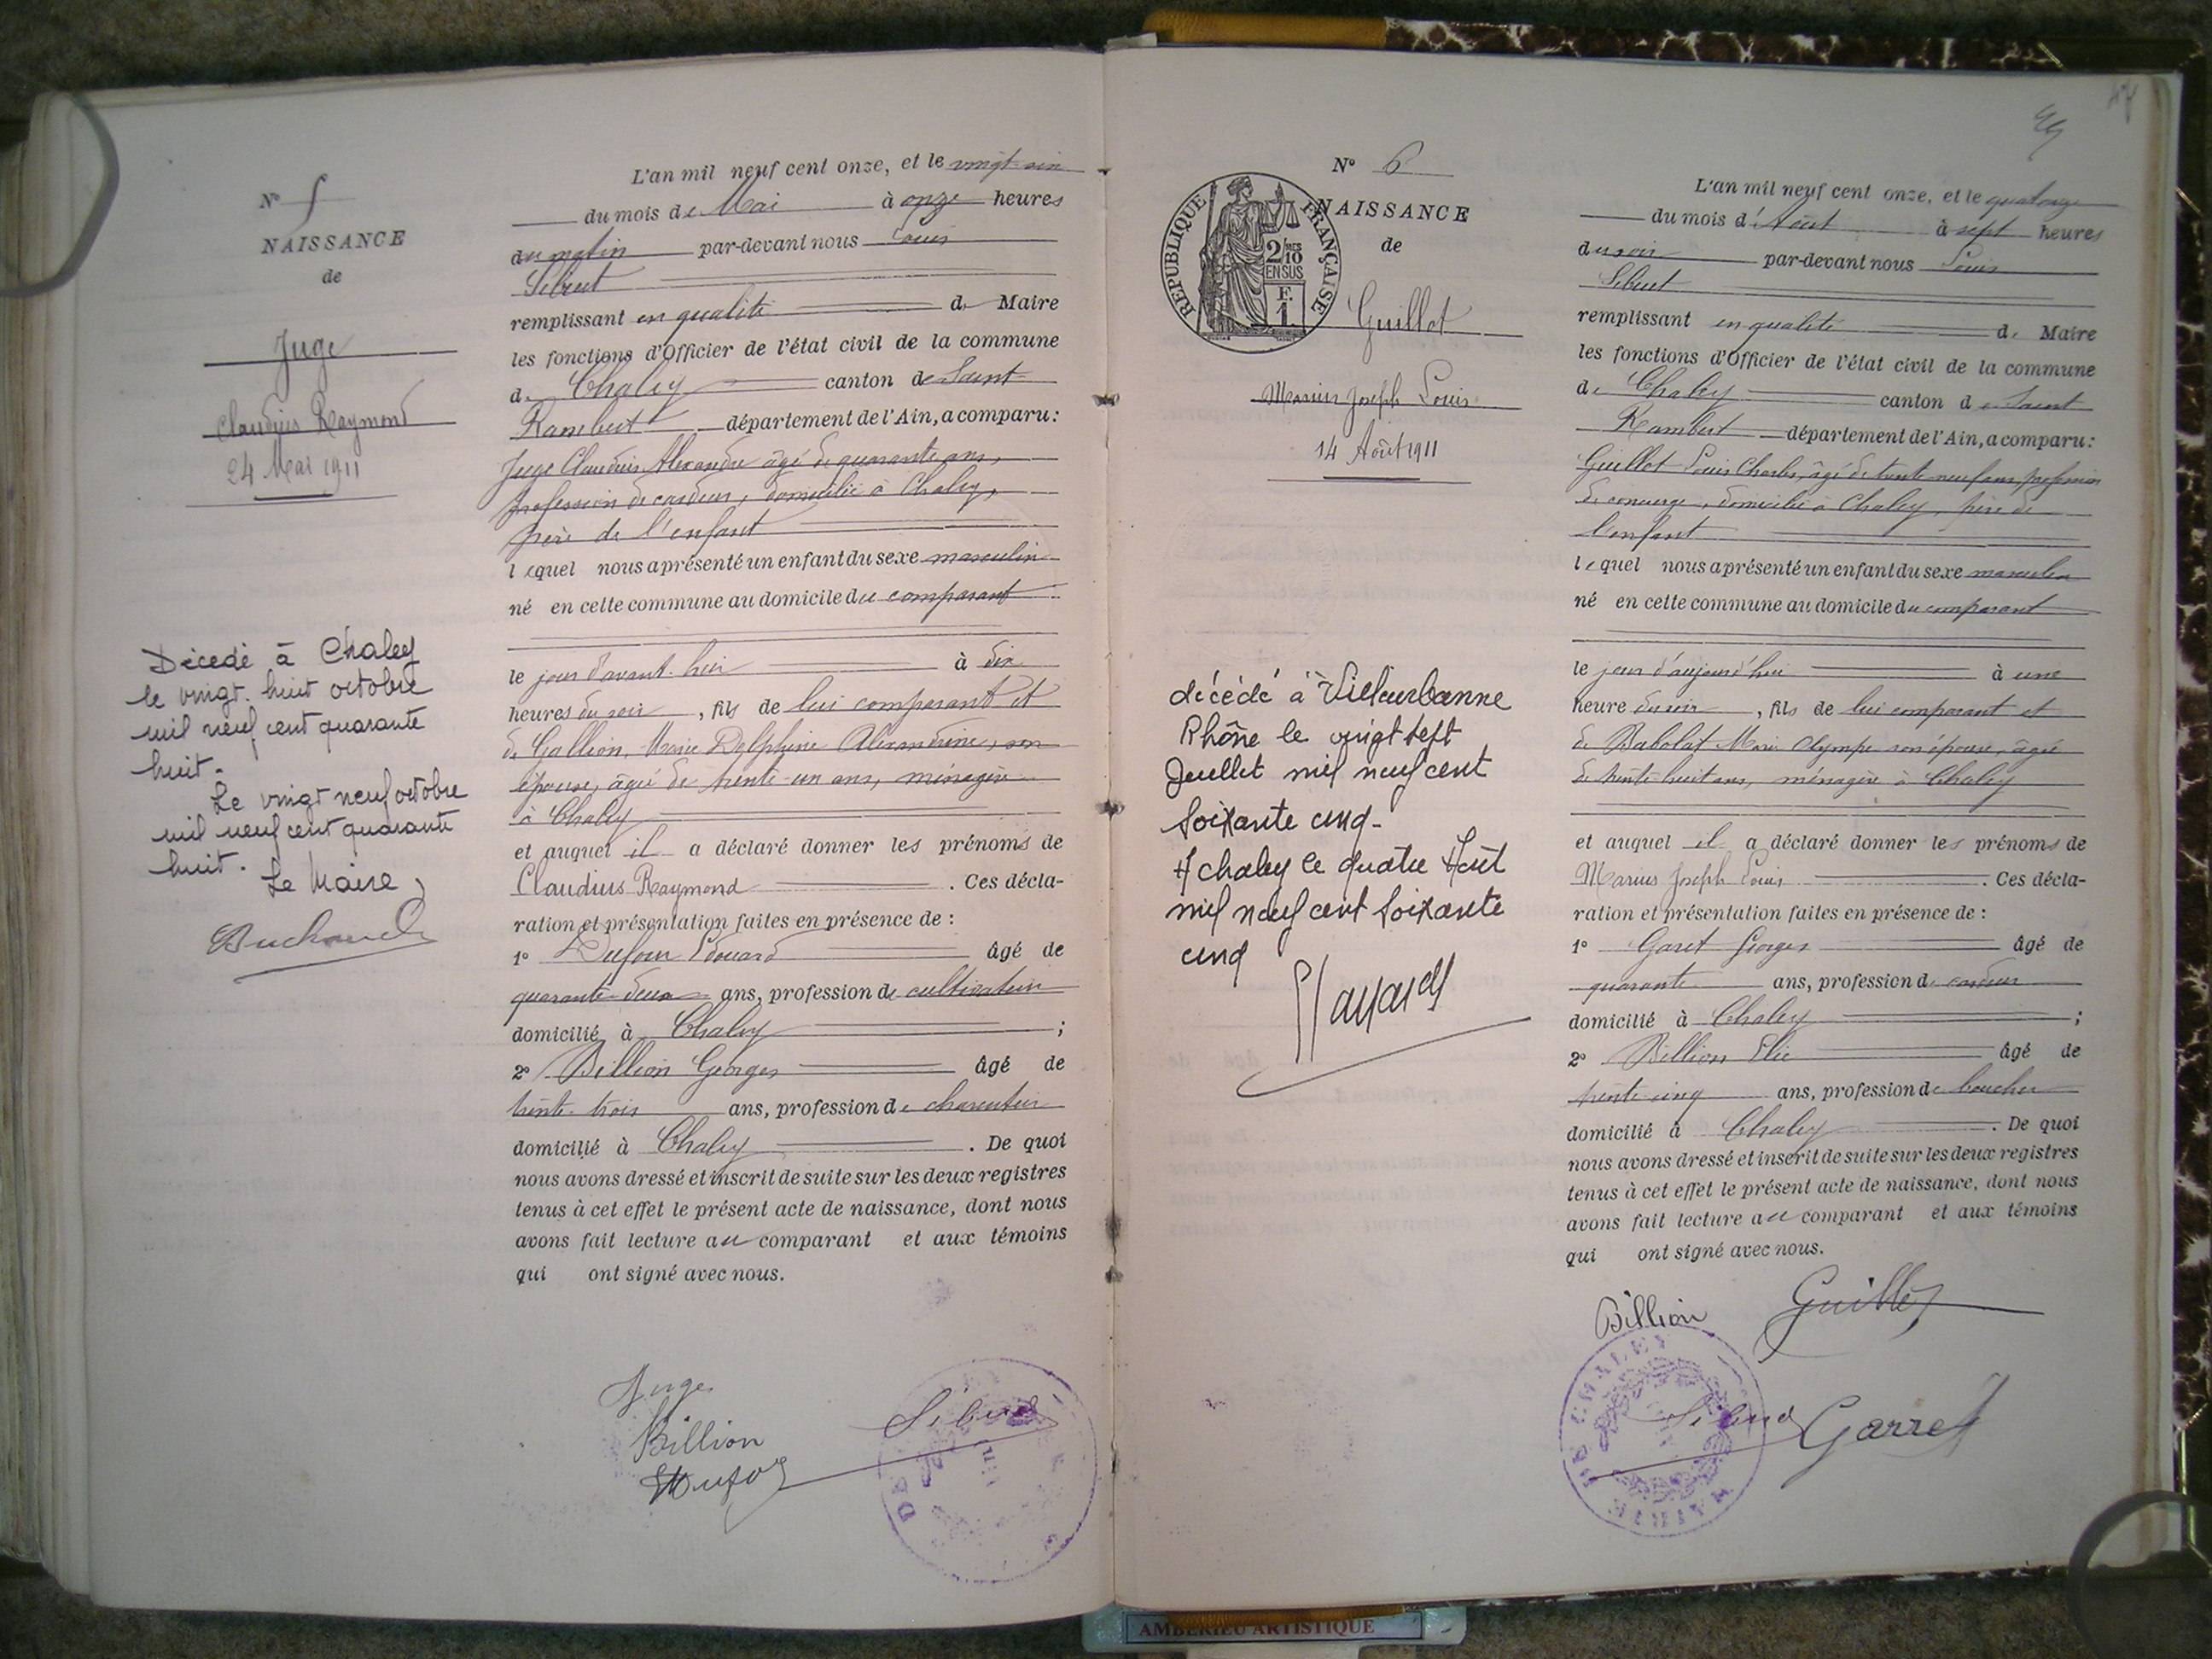 N° 5
NAISSANCE
de
Juge
Claudius Raymond
24 Mai 1911
Décédé à Chaley
le vingt-huit octobre
mil neuf cent quarante
huit.
Le vingt neuf octobre
mil neuf cent quarante
huit.
Le Maire,
L'an mil neuf cent onze, et le vingt-six
du mois de Mai à onze heures
du matin par-devant nous Louis
Sibuet
remplissant en qualité de Maire
les fonctions d'Officier de l'état civil de la commune
de Chaley canton de Saint
Rambert département de l'Ain, a comparu:
Juge Claudius Alexandre âgé de quarante ans,
profession de cardeur, domicilié à Chaley,
père de l'enfant
lequel nous a présenté un enfant du sexe masculin
né en cette commune au domicile du comparant
le jour d'avant-hier à dix
heures du soir, fils de lui comparant et
de Gallion, Marie Delphine Alexandrine, son
épouse, âgée de trente-un ans, ménagère
à Chaley
et auquel il a déclaré donner les prénoms de
Claudius Raymond. Ces décla-
ration et présentation faites en présence de :
1° Dufour Edouard âgé de
quarante-deux ans, profession de cultivateur
domicilié à Chaley ;
2° Billion Georges âgé de
trente-trois ans, profession de
domicilié à Chaley. De quoi
nous avons dressé et inscrit de suite sur les deux registres
tenus à cet effet le présent acte de naissance, dont nous
avons fait lecture au comparant et aux témoins
qui ont signé avec nous.
Juge
Billion
Dufour
Sibuet
N° 6
NAISSANCE
de
RÉPUBLIQUE FRANÇAISE
2/10 MES
EN SUS
F. 1
Guillot
Marius Joseph Louis
14 Août 1911
décédé à Villeurbanne
Rhône le vingt sept
Juillet mil neuf cent
soixante cinq-
A chaley le quatre Août
mil neuf cent soixante
cinq
L'an mil neuf cent onze, et le quatorze
du mois d'Août à sept heures
du soir par-devant nous Louis
Sibuet
remplissant en qualité de Maire
les fonctions d'Officier de l'état civil de la commune
de Chaley canton de Saint
Rambert département de l'Ain, a comparu:
Guillot Louis Charles, âgé de trente-neuf ans, profession
de concierge, domicilié à Chaley, père de
l'enfant
lequel nous a présenté un enfant du sexe masculin
né en cette commune au domicile du comparant
le jour d'aujourd'hui à une
heure du soir, fils de lui comparant et
de Babolat Marie Olympe son épouse, âgée
de trente-huit ans, ménagère à Chaley
et auquel il a déclaré donner les prénoms de
Marius Joseph Louis. Ces décla-
ration et présentation faites en présence de :
1° Garet Georges âgé de
quarante ans, profession de cardeur
domicilié à Chaley ;
2° Billion Elie âgé de
trente-cinq ans, profession de boucher
domicilié à Chaley. De quoi
nous avons dressé et inscrit de suite sur les deux registres
tenus à cet effet le présent acte de naissance, dont nous
avons fait lecture au comparant et aux témoins
qui ont signé avec nous.
Billion Guillot
Sibuet Garret
DE CHALEY
MAIRIE
AMBÉRIEU ARTISTIQUE